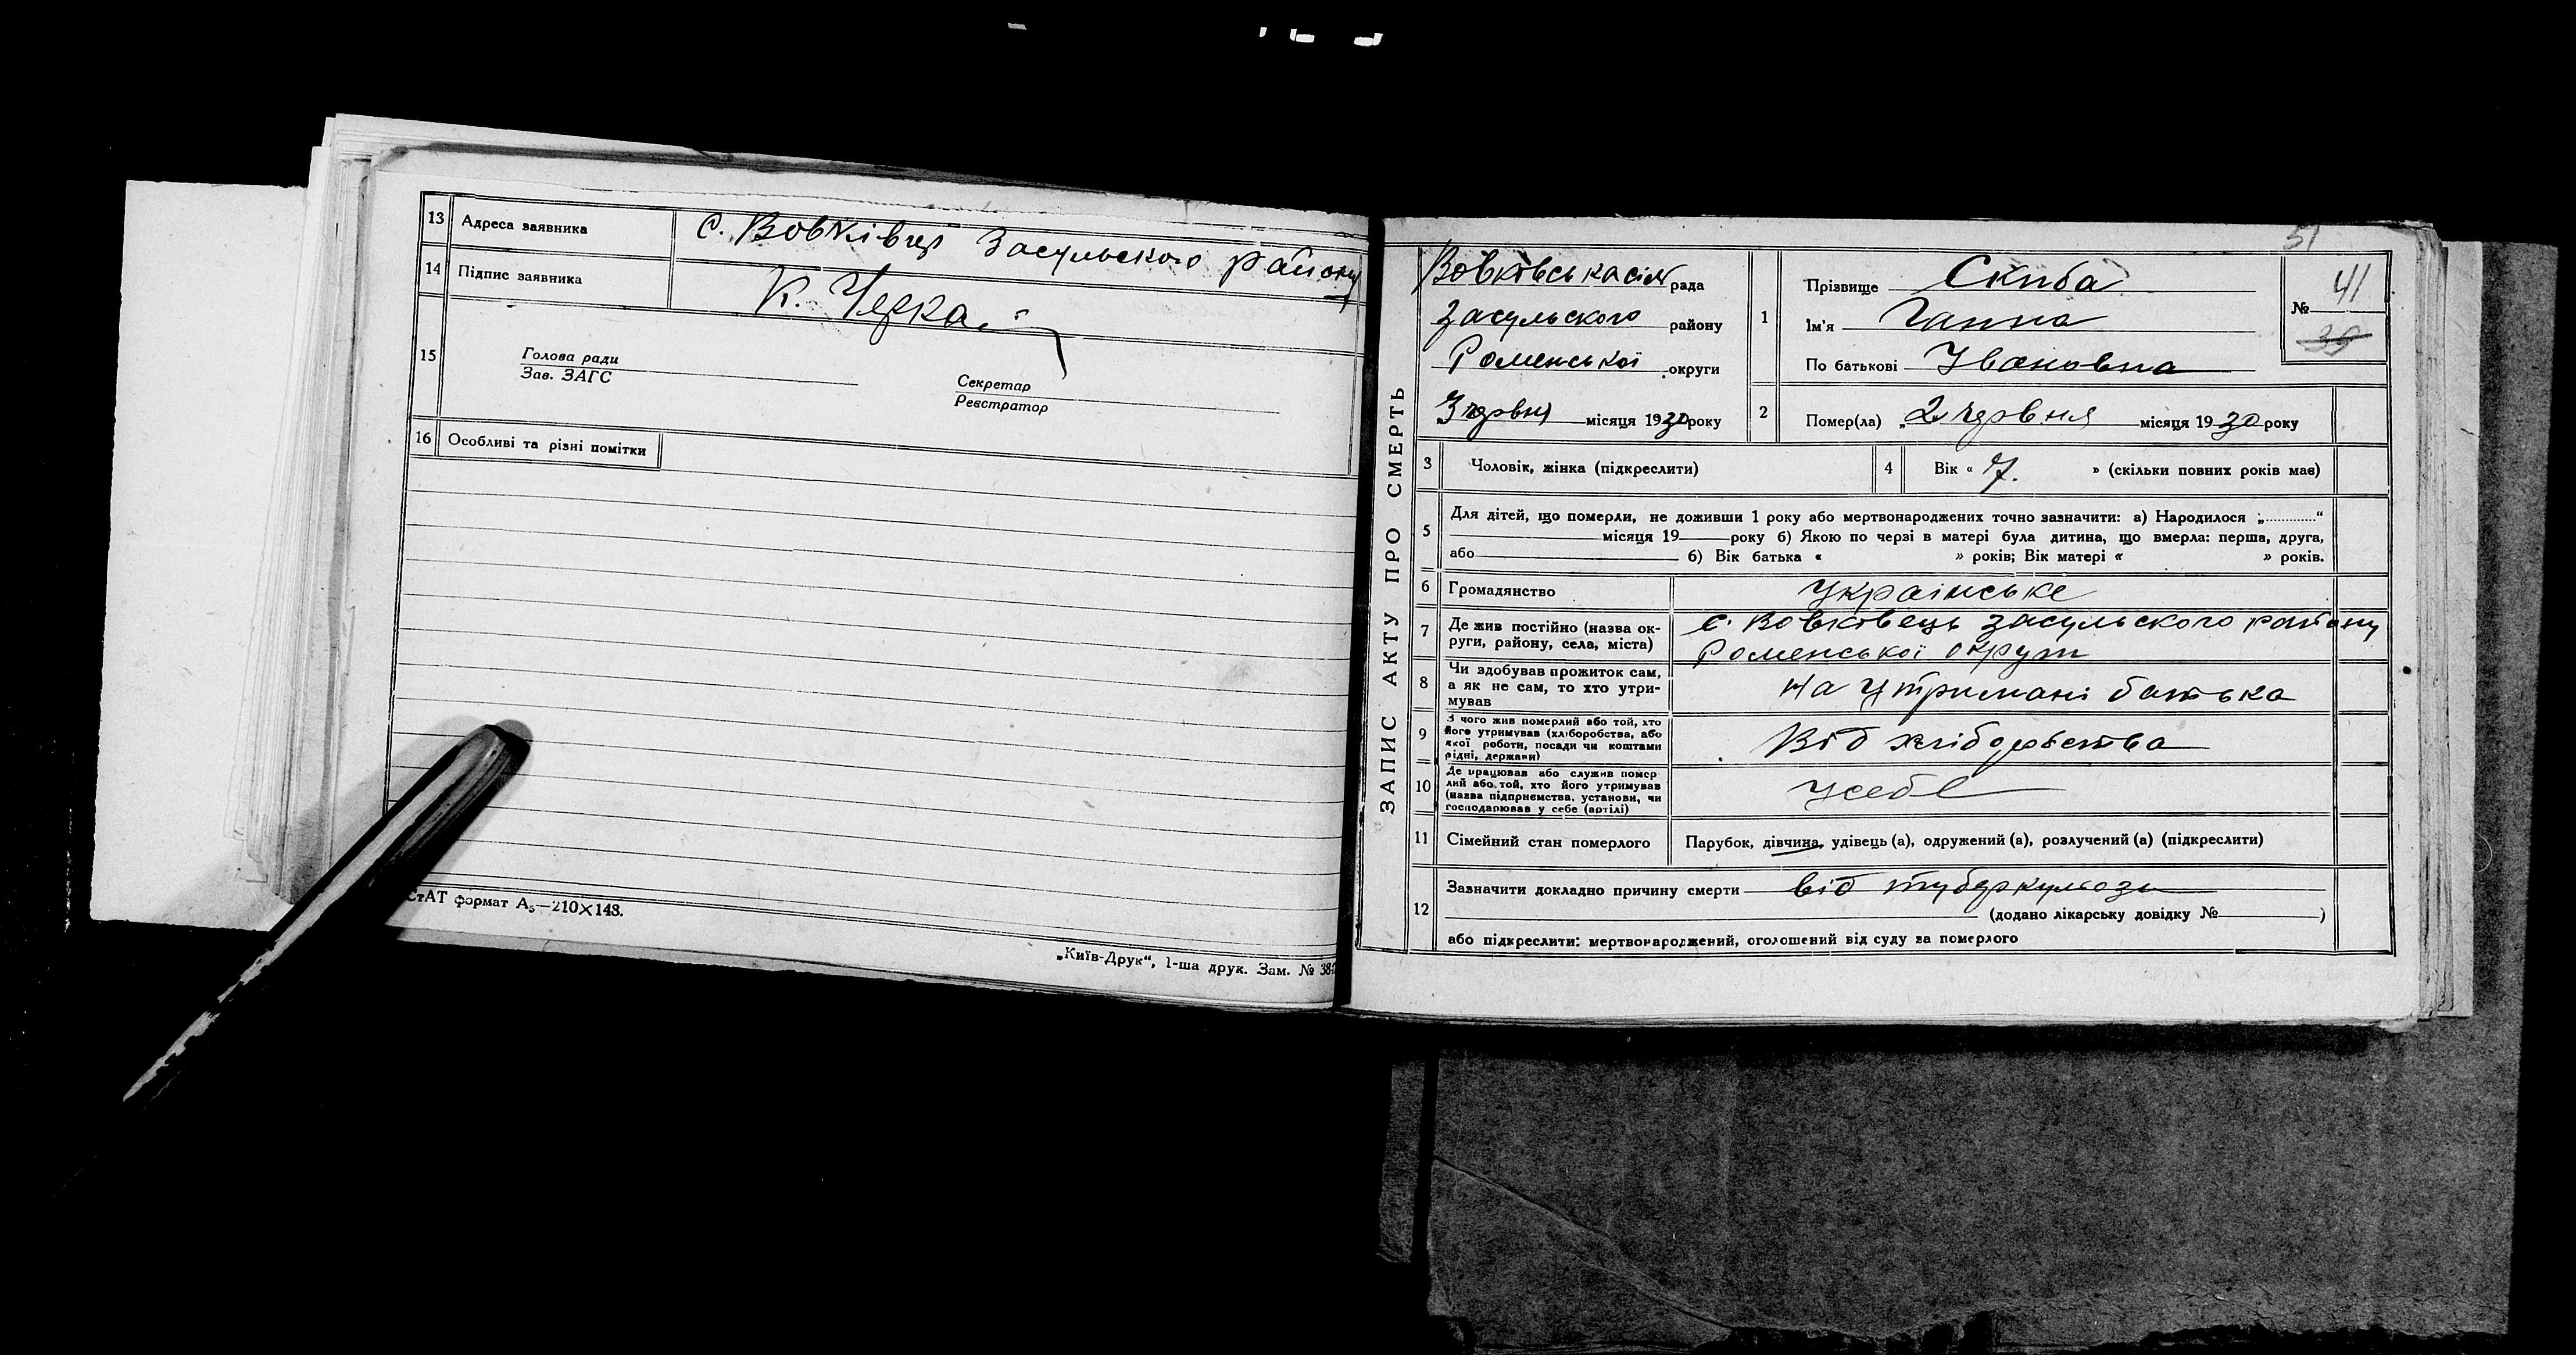 13 Адреса заявника С. Вовківці Засульского району
14 Підпис заявника К. Черкай
15 Голова ради
Зав. ЗАГС
Секретар
Реєстратор
16 Особливі та різні помітки
СтАТ формат А5—210×148.
„Київ-Друк“, 1-ша друк. Зам. № 38
ЗАПИС АКТУ ПРО СМЕРТЬ
51
Вовківська сіл рада
Засульского району
Роменської округи
3 червня місяця 1930 року
1 Прізвище Скиба
Ім'я Ганна
По батькові Івановна
№ 41
39
2 Помер(ла) „2 червня місяця 1930 року
3 Чоловік, жінка (підкреслити)
4 Вік « 7. » (скільки повних років мав)
5 Для дітей, що померли, не доживши 1 року або мертвонароджених точно зазначити: а) Народилося „............“
місяця 19 року б) Якою по черзі в матері була дитина, що вмерла: перша, друга,
або б) Вік батька « » років; Вік матері « » років.
6 Громадянство Українське
7 Де жив постійно (назва ок-
руги, району, села, міста)
с. Вовковець засульского району
Роменської округи
8 Чи здобував прожиток сам,
а як не сам, то хто утри-
мував
на утримані батька
9 З чого жив померлий або той, хто
його утримував (хліборобства, або
якої роботи, посади чи коштами
рідні, держави)
Від хліборобства
10 Де працював або служив помер
лий або той, хто його утримував
(назва підприємства, установи, чи
господарював у себе (артілі)
У себе
11 Сімейний стан померлого Парубок, дівчина, удівець (а), одружений (а), розлучений (а) (підкреслити)
12 Зазначити докладно причину смерти від туберкульози
(додано лікарську довідку № )
або підкреслити: мертвонароджений, оголошений від суду за померлого